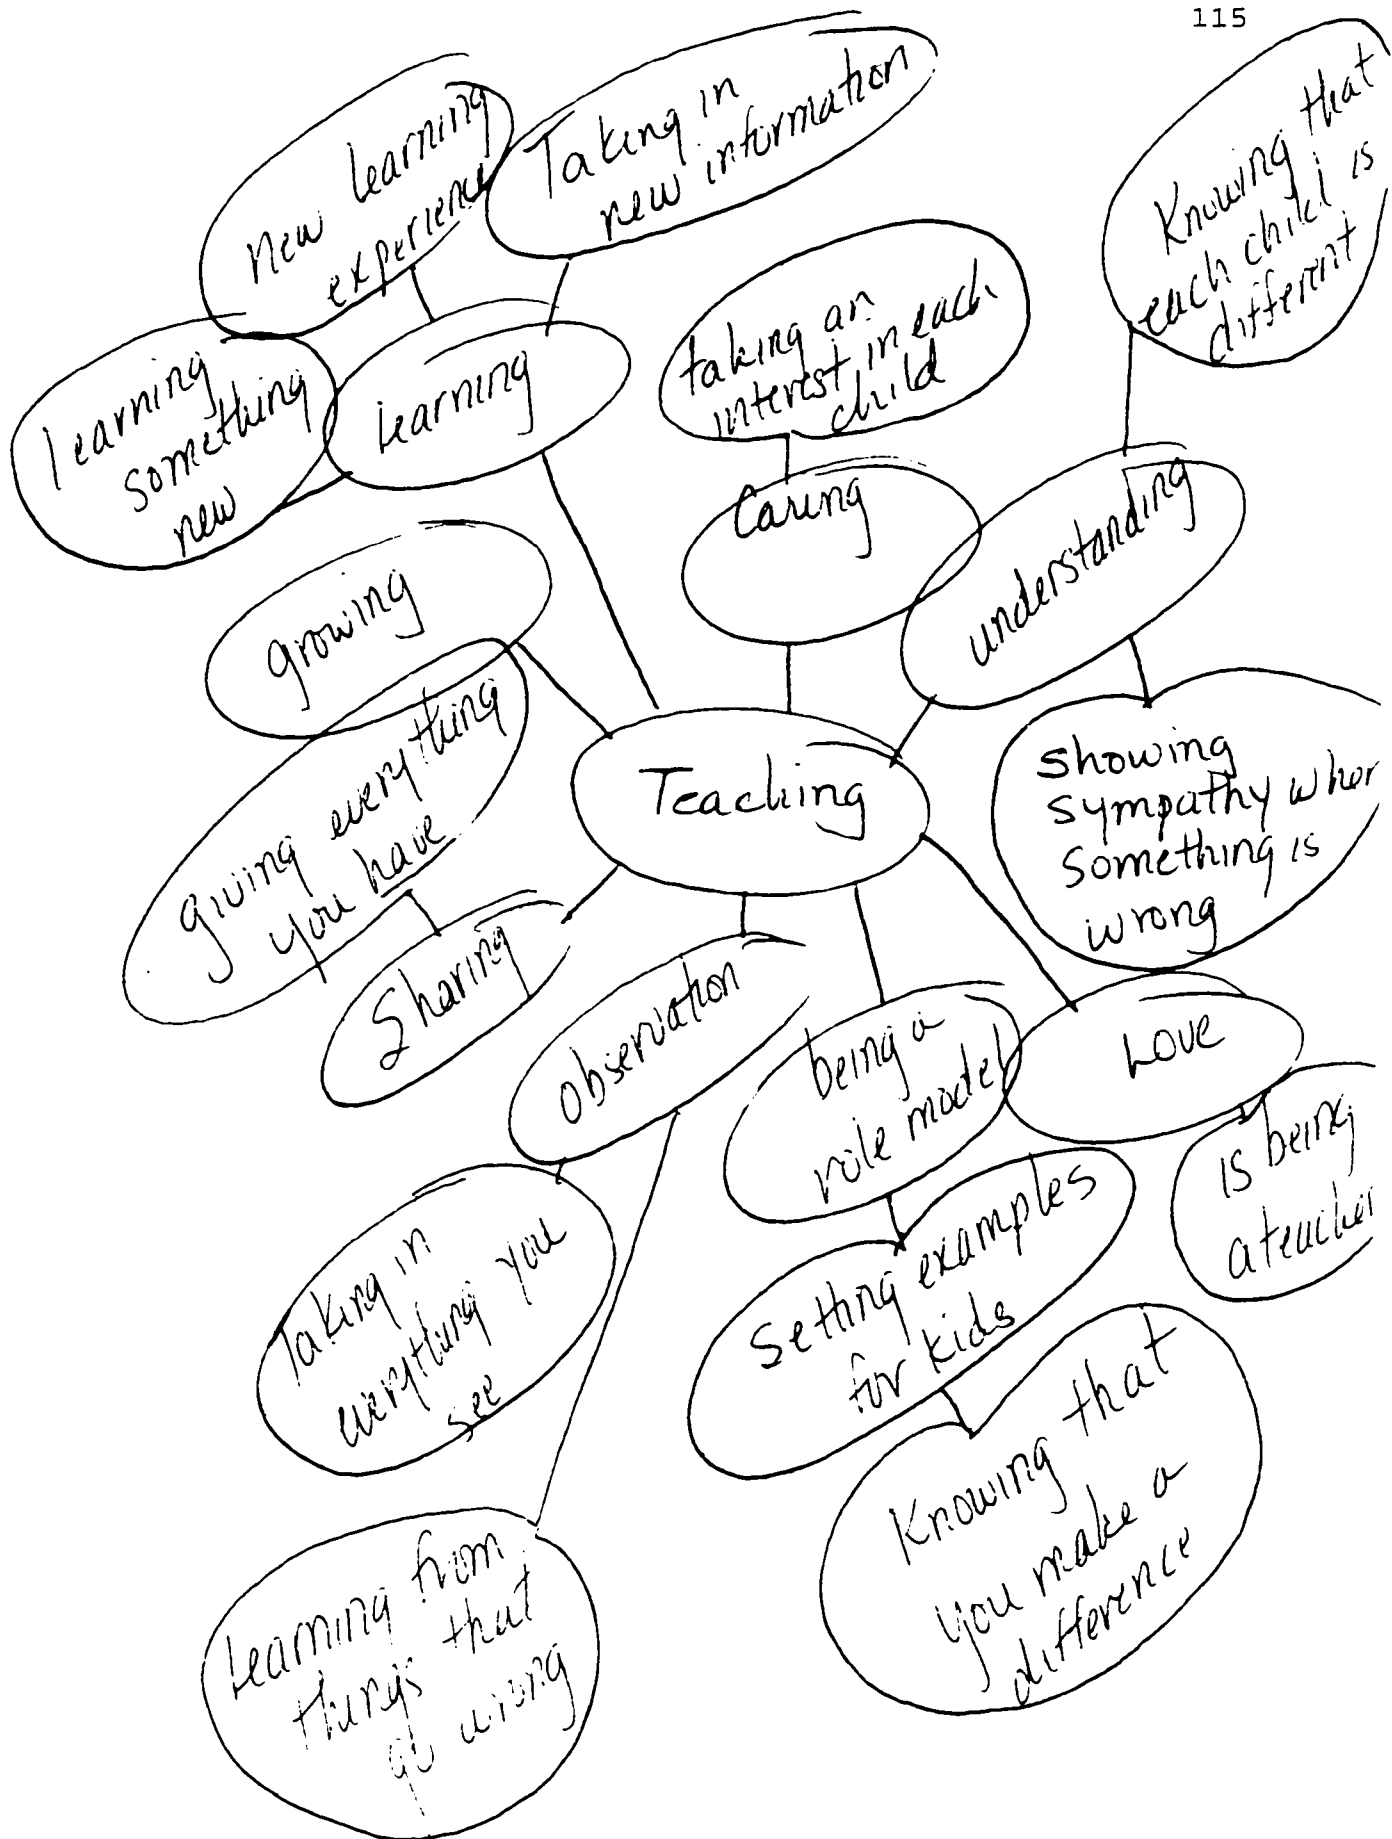 115
new learning
experience
Taking in
new information
Knowing that
each child is
different
learning
something
new
learning
taking an
interest in each
child
Caring
understanding
growing
giving everything
you have
Teaching
showing
sympathy when
something is
wrong
Sharing
observation
being a
role model
Love
is being
a teacher
Taking in
everything you
see
Setting examples
for kids
Knowing that
you make a
difference
Learning from
things that
go wrong